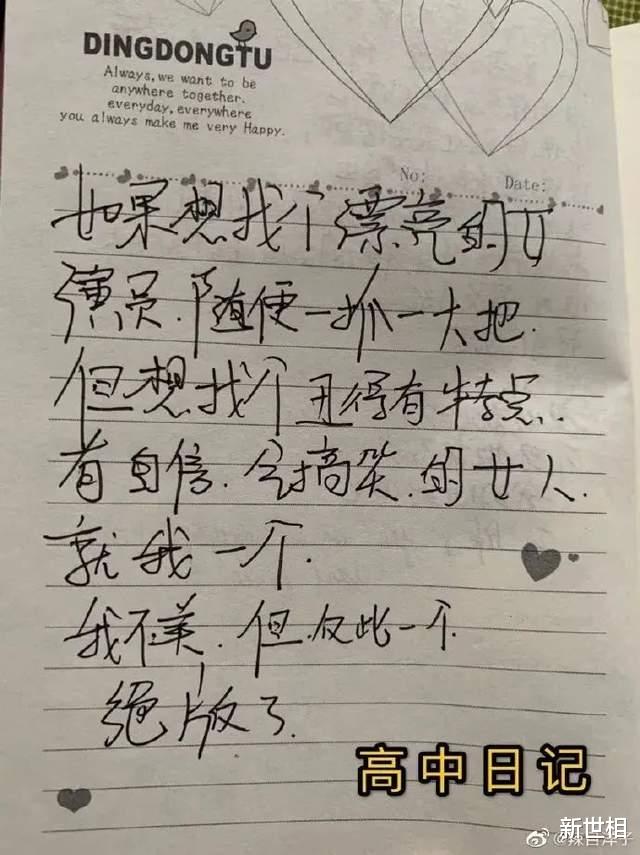 DINGDONGTU
Always, we want to be
anywhere together.
everyday, everywhere
you always make me very Happy.
No:
Date:
如果想找个漂亮的女
演员.随便一抓一大把.
但想找个丑得有特点.
有自信.会搞笑.的女人.
就我一个.
我不美.但.仅此一个.
绝版了.
高中日记
新世相
@辣目洋子